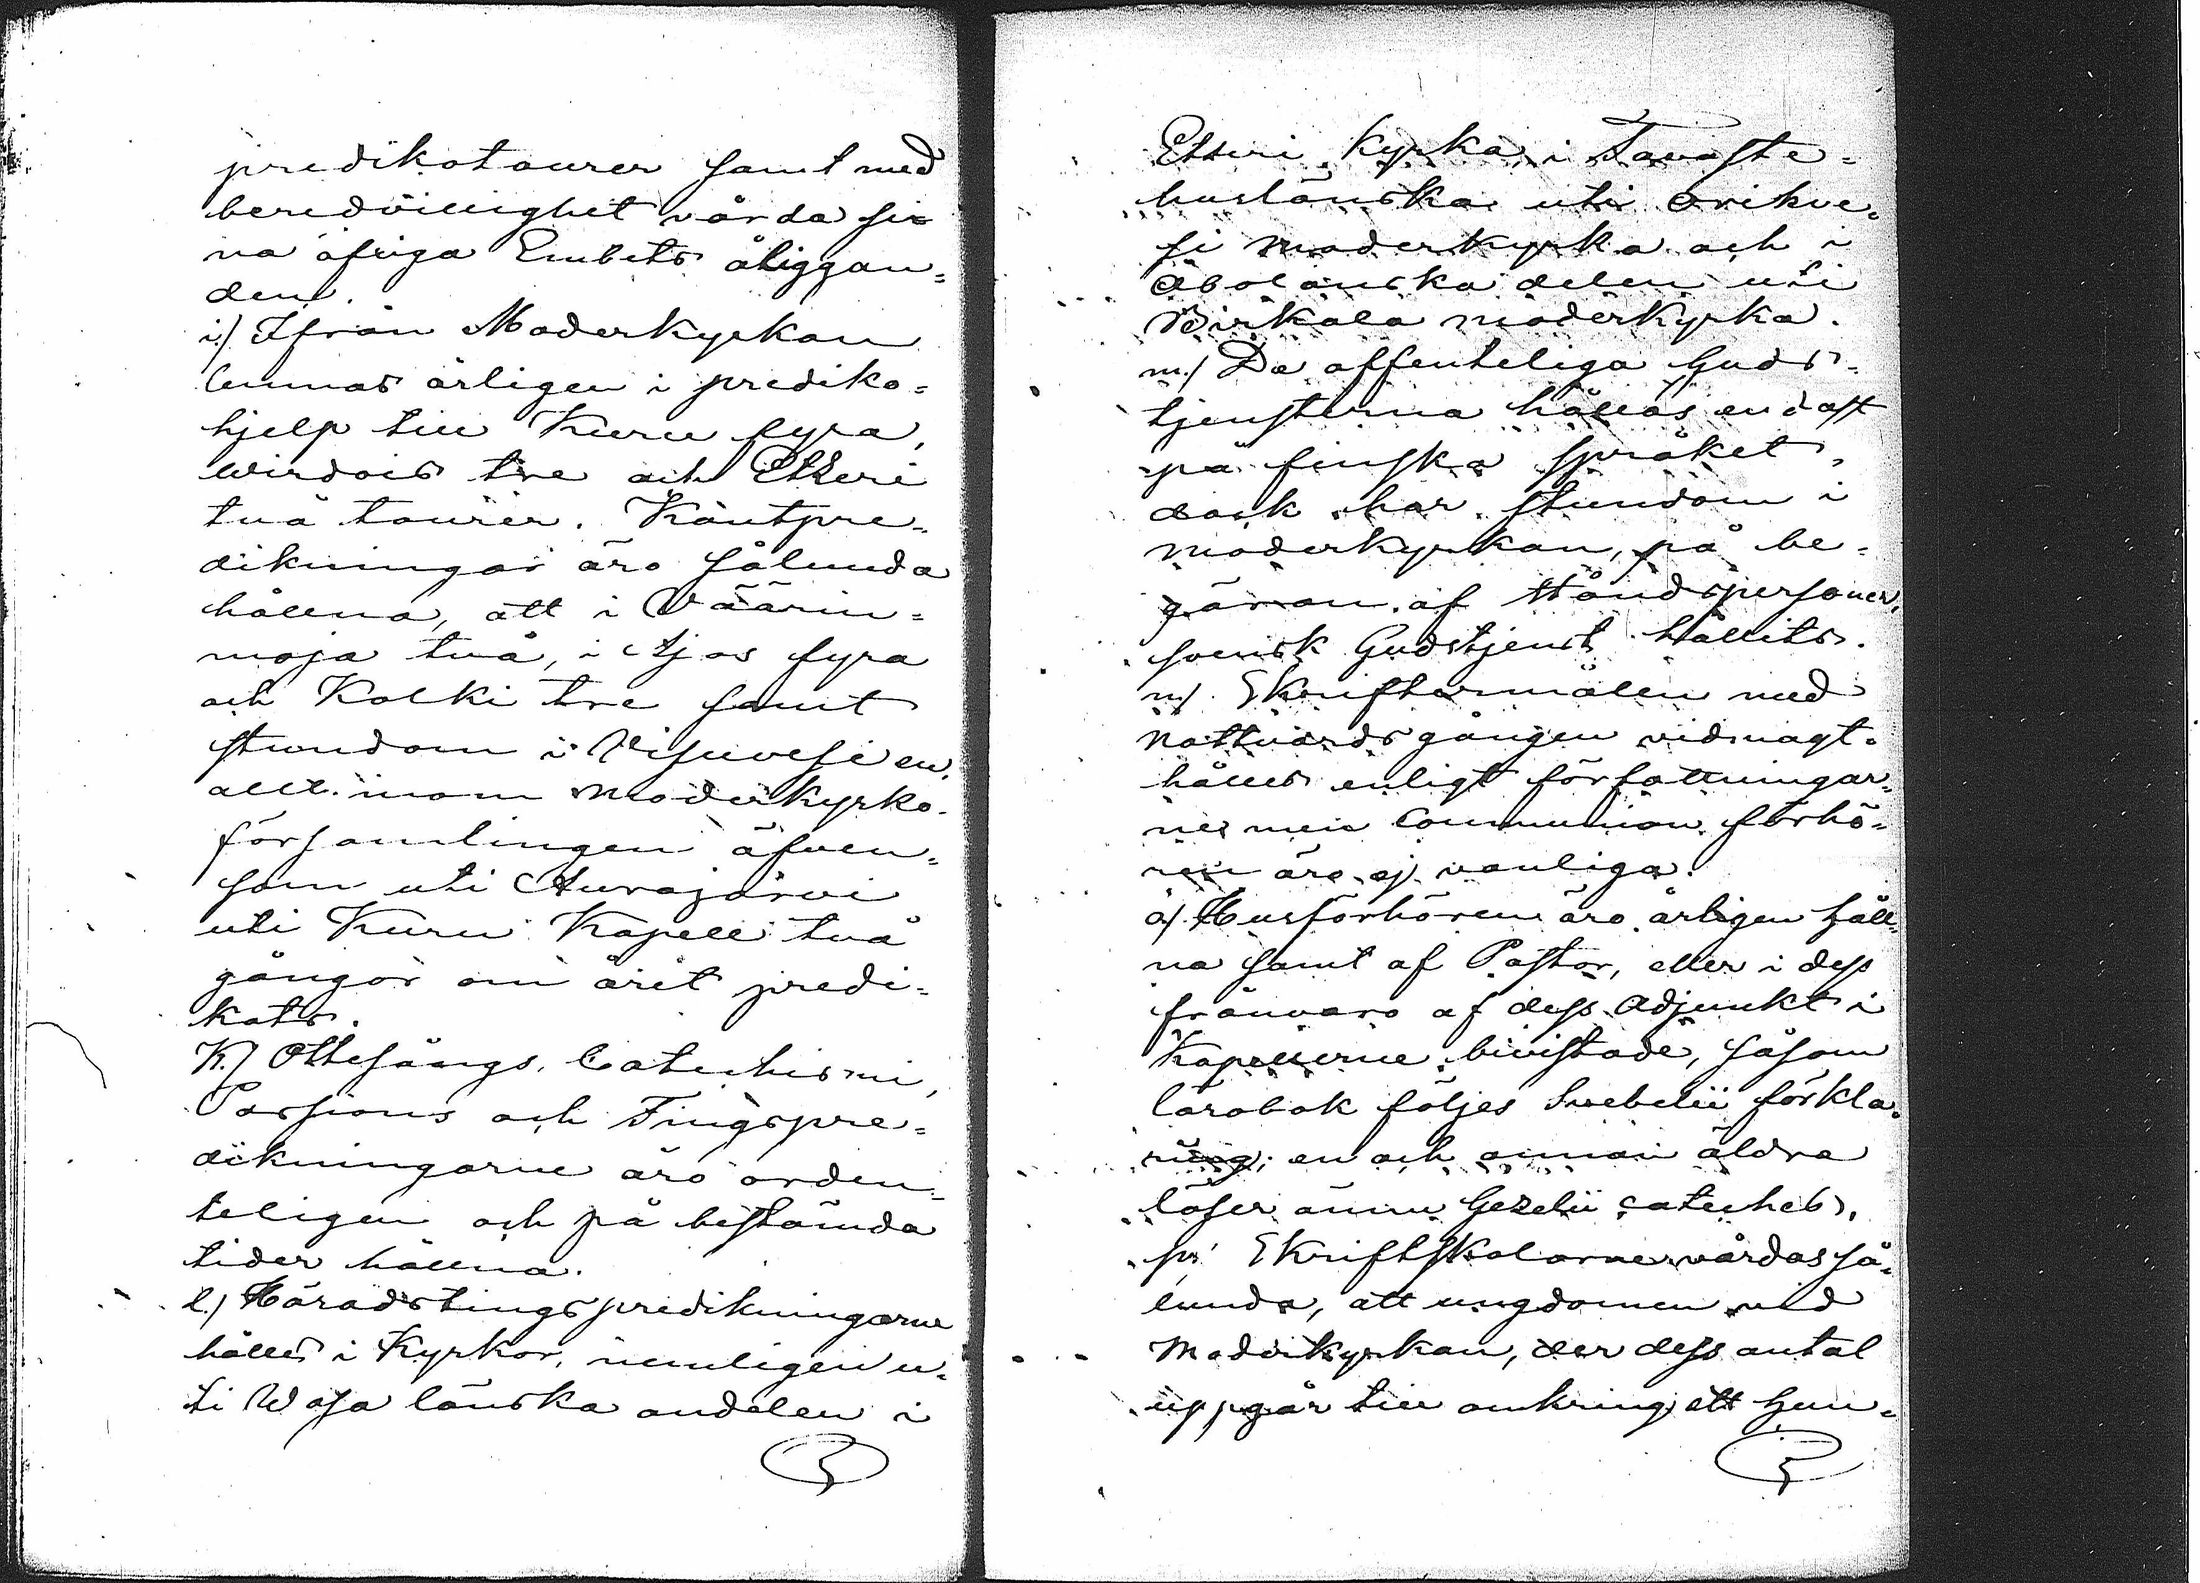 predikotourer samt med
beredvillighet vårda si-
na öfriga Embets åliggan=
den.
i.) Ifrån Moderkyrkan
lemnas årligen i prediko=
hjelp till Kuru fyra,
Wirdois tre och Etseri
två tourer. Köutpre=
dikningar äro sålunda
hållna, att i Väärin=
maja två, i Ajos fyra
och Kolki tre samt
stundom i Visuvesi en,
allt inom Moderkyrko-
församlingen äfven=
som uti Aurajärvi
uti Kuru Kapell två
gångor om året predi=
kats.
K.) Ottesångs, Catechismi,
Passions och Tingspre=
dikningarne äro orden=
teligen och på bestämda
tider hållna.
l.) Häradstingspredikningarne
hålles i Kyrkor, nemligen u=
ti Wasa länska andelen i
Etseri Kyrka, i Tavaste=
huslänska uti Orihve=
si moderkyrka och i
Åbolänska delen uti
Birkala moderkyrka.
m.) De offenteliga Guds=
tjensterna hållas endast
på finska språket,
dock har stundom i
moderkyrkan, på be=
gäran af Ståndspersoner,
svensk Gudstjenst hållits.
n.) Skriftermålen med
Nattvardsgången vidmagt=
hålles enligt författningar=
ne men Communion förhö=
ren äro ej vanliga.
o.) Husförhören äro årligen håll=
na samt af Pastor, eller i dess
frånvaro af dess Adjunkt i
Kapellerne bivistade, såsom
lärobok följes Svebelii förkla=
ring; en och annan äldre
läser ännu Gezelii cateches.
p.) Skriftskolorne vårdas så=
lunda, att ungdomen vid
Moderkyrkan, der dess antal
uppgår till omkring ett hun=